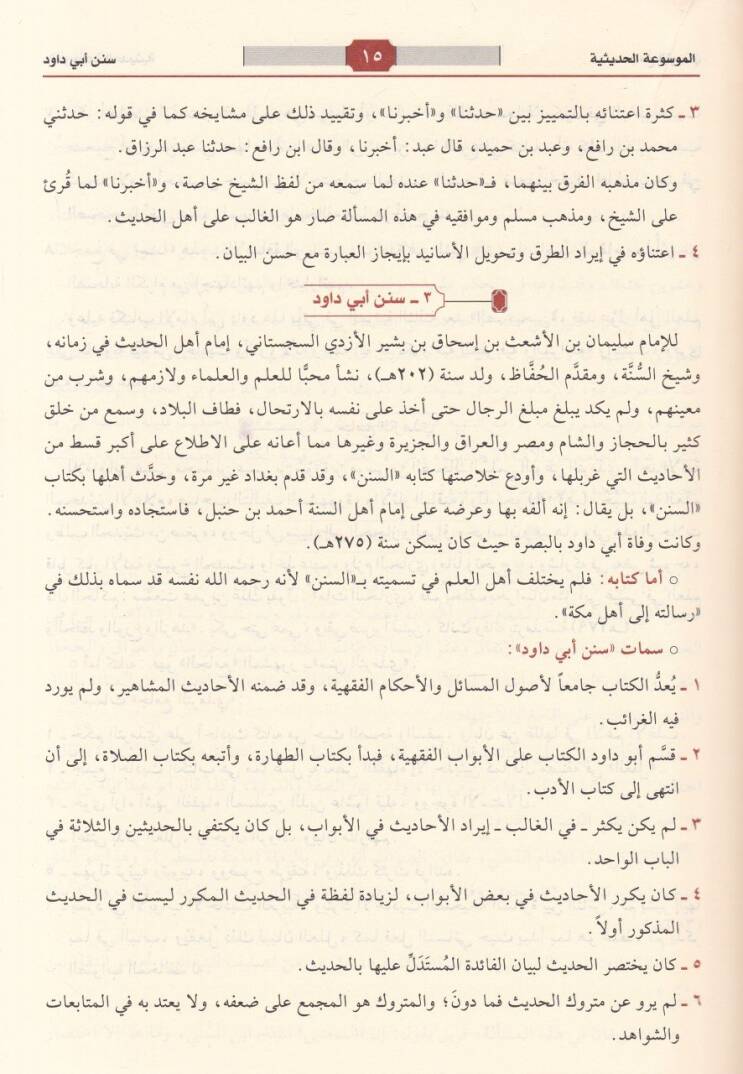 الموسوعة الحديثية ١٥ سنن أبي داود
٣ ـ كثرة اعتنائه بالتمييز بين «حدثنا» و«أخبرنا»، وتقييد ذلك على مشايخه كما في قوله: حدثني
محمد بن رافع، وعبد بن حميد، قال عبد: أخبرنا، وقال ابن رافع: حدثنا عبد الرزاق.
وكان مذهبه الفرق بينهما، فـ«حدثنا» عنده لما سمعه من لفظ الشيخ خاصة، و«أخبرنا» لما قُرئ
على الشيخ، ومذهب مسلم وموافقيه في هذه المسألة صار هو الغالب على أهل الحديث.
٤ ـ اعتناؤه في إيراد الطرق وتحويل الأسانيد بإيجاز العبارة مع حسن البيان.
٣ ـ سنن أبي داود
للإمام سليمان بن الأشعث بن إسحاق بن بشير الأزدي السجستاني، إمام أهل الحديث في زمانه،
وشيخ السُّنَّة، ومقدَّم الحُفَّاظ، ولد سنة (٢٠٢هـ)، نشأ محبًّا للعلم والعلماء ولازمهم، وشرب من
معينهم، ولم يكد يبلغ مبلغ الرجال حتى أخذ على نفسه بالارتحال، فطاف البلاد، وسمع من خلق
كثير بالحجاز والشام ومصر والعراق والجزيرة وغيرها مما أعانه على الاطلاع على أكبر قسط من
الأحاديث التي غربلها، وأودع خلاصتها كتابه «السنن»، وقد قدم بغداد غير مرة، وحدَّث أهلها بكتاب
«السنن»، بل يقال: إنه ألفه بها وعرضه على إمام أهل السنة أحمد بن حنبل، فاستجاده واستحسنه.
وكانت وفاة أبي داود بالبصرة حيث كان يسكن سنة (٢٧٥هـ).
○ أما كتابه: فلم يختلف أهل العلم في تسميته بـ«السنن» لأنه رحمه الله نفسه قد سماه بذلك في
«رسالته إلى أهل مكة».
○ سمات «سنن أبي داود»:
١ ـ يُعدُّ الكتاب جامعاً لأصول المسائل والأحكام الفقهية، وقد ضمنه الأحاديث المشاهير، ولم يورد
فيه الغرائب.
٢ ـ قسَّم أبو داود الكتاب على الأبواب الفقهية، فبدأ بكتاب الطهارة، وأتبعه بكتاب الصلاة، إلى أن
انتهى إلى كتاب الأدب.
٣ ـ لم يكن يكثر ـ في الغالب ـ إيراد الأحاديث في الأبواب، بل كان يكتفي بالحديثين والثلاثة في
الباب الواحد.
٤ ـ كان يكرر الأحاديث في بعض الأبواب، لزيادة لفظة في الحديث المكرر ليست في الحديث
المذكور أولاً.
٥ ـ كان يختصر الحديث لبيان الفائدة المُستَدَلِّ عليها بالحديث.
٦ ـ لم يرو عن متروك الحديث فما دونَ؛ والمتروك هو المجمع على ضعفه، ولا يعتد به في المتابعات
والشواهد.